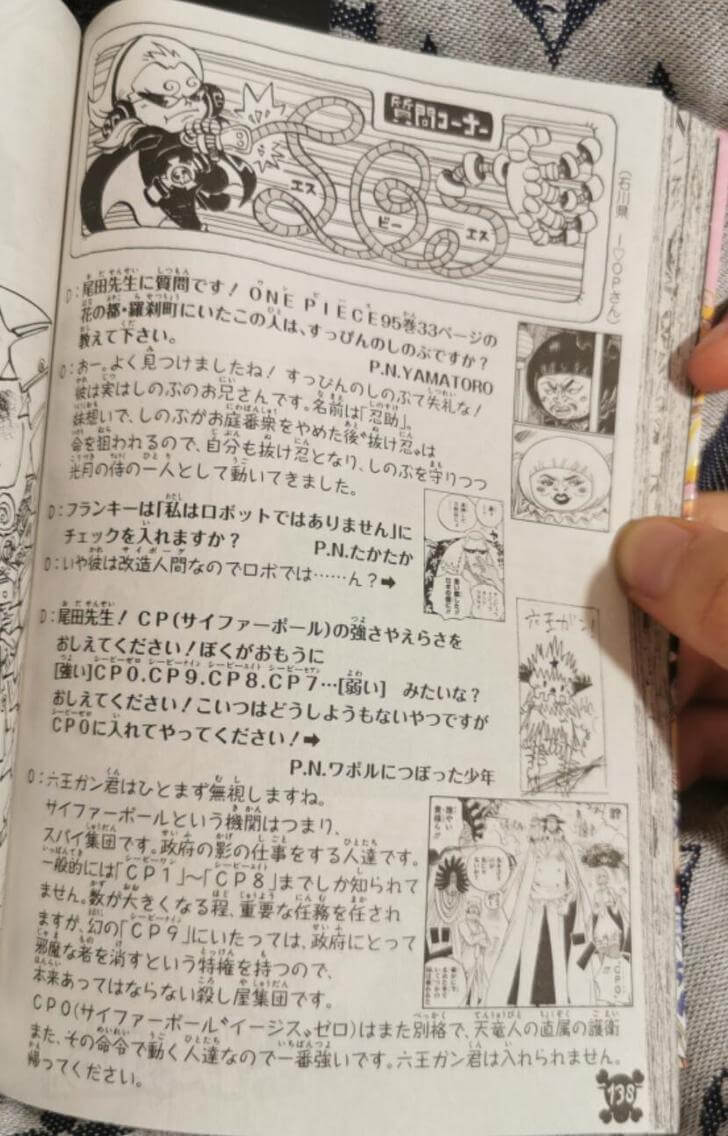 質問コーナー
エス
ビー
エス
(石川県 I♡OPさん)
D:尾田先生に質問です! ONE PIECE95巻33ページの
花の都・羅刹町にいたこの人は、すっぴんのしのぶですか?
教えて下さい。
P.N.YAMATORO
O:おー。よく見つけましたね! すっぴんのしのぶて失礼な!
彼は実はしのぶのお兄さんです。名前は「忍助」。
妹想いで、しのぶがお庭番衆をやめた後〝抜け忍〟は
命を狙われるので、自分も抜け忍となり、しのぶを守りつつ
光月の侍の一人として動いてきました。
D:フランキーは「私はロボットではありません」に
チェックを入れますか?
P.N.たかたか
O:いや彼は改造人間なのでロボでは……ん?➡
D:尾田先生! CP(サイファーポール)の強さやえらさを
おしえてください!ぼくがおもうに
[強い]CP0.CP9.CP8.CP7…[弱い] みたいな?
おしえてください!こいつはどうしようもないやつですが
CP0に入れてやってください!➡
P.N.ワポルにつぼった少年
六王ガン!
O:六王ガン君はひとまず無視しますね。
サイファーポールという機関はつまり、
スパイ集団です。政府の影の仕事をする人達です。
一般的には「CP1」~「CP8」までしか知られて
ません。数が大きくなる程、重要な任務を任され
ますが、幻の「CP9」にいたっては、政府にとって
邪魔な者を消すという特権を持つので、
本来あってはならない殺し屋集団です。
CP0(サイファーポール〝イージス〟ゼロ)はまた別格で、天竜人の直属の護衛
また、その命令で動く人達なので一番強いです。六王ガン君は入れられません。
帰ってください。
138